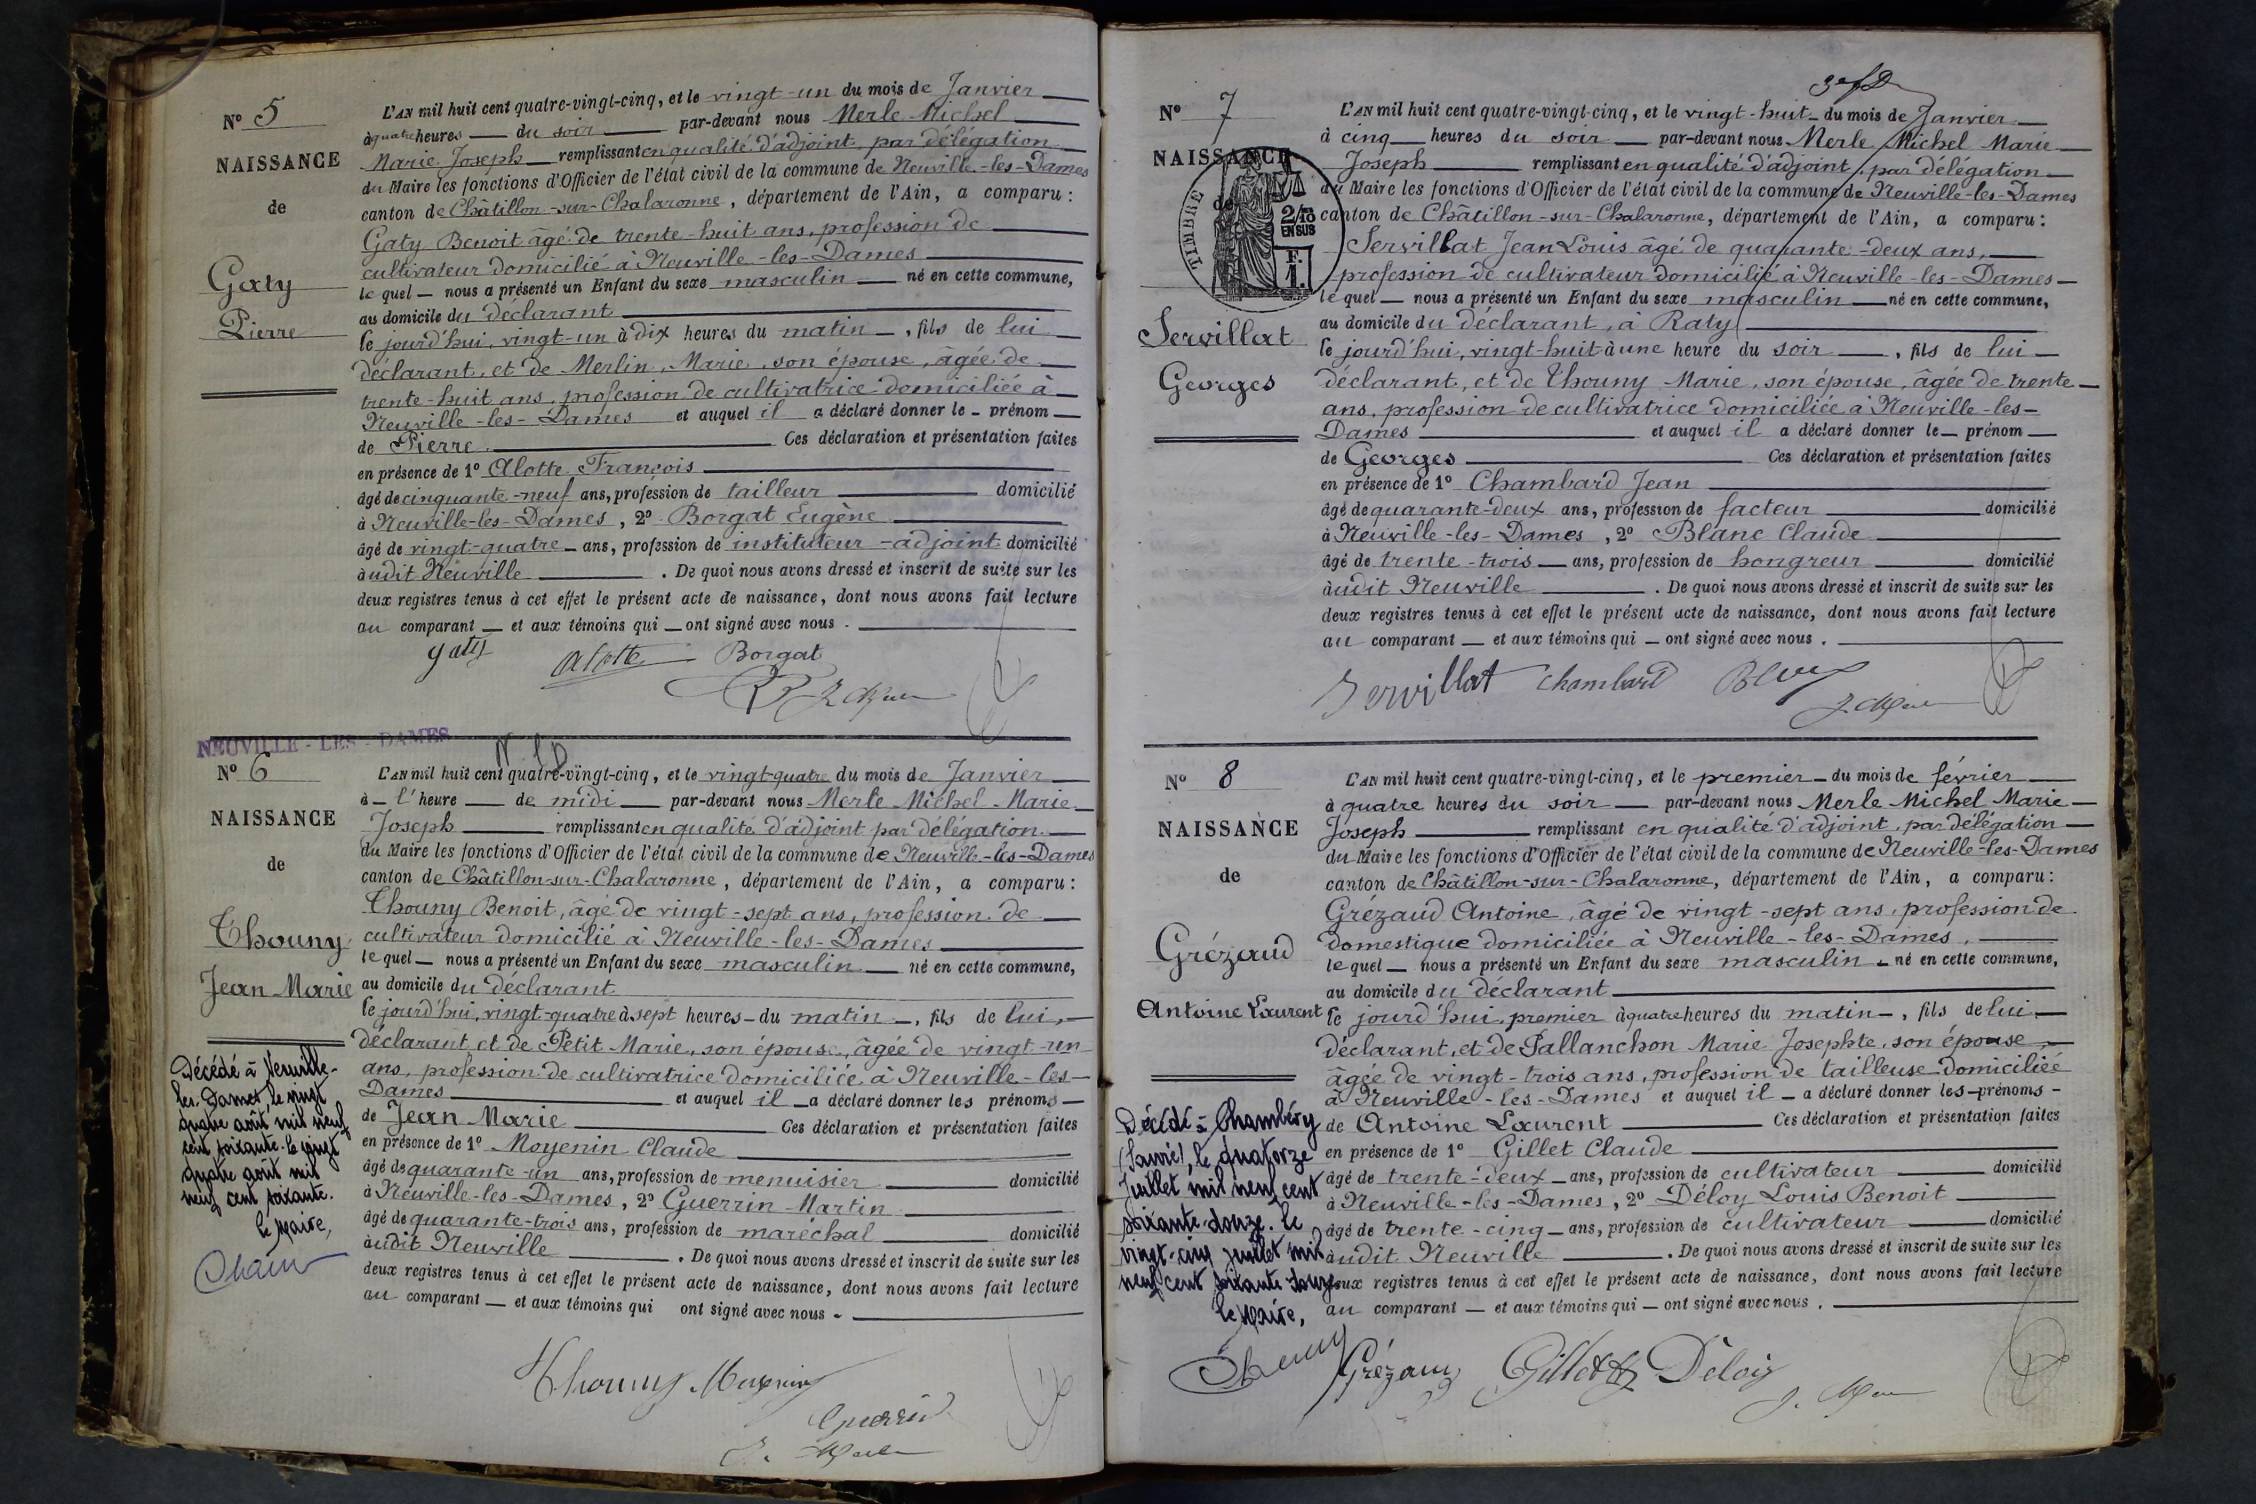 N° 5
NAISSANCE
de
Gaty
Pierre
L'AN mil huit cent quatre-vingt-cinq, et le vingt-un du mois de Janvier
à quatre heures du soir par-devant nous Merle Michel
Marie Joseph remplissant en qualité d'adjoint par délégation
du Maire les fonctions d'Officier de l'état civil de la commune de Neuville-les-Dames
canton de Châtillon-sur-Chalaronne, département de l'Ain, a comparu :
Gaty Benoit âgé de trente-huit ans, profession de
cultivateur domicilié à Neuville-les-Dames
le quel nous a présenté un Enfant du sexe masculin né en cette commune,
au domicile du déclarant
le jourd'hui, vingt-un à dix heures du matin, fils de lui
déclarant, et de Merlin, Marie, son épouse, âgée de
trente-huit ans, profession de cultivatrice domiciliée à
Neuville-les-Dames et auquel il a déclaré donner le prénom
de Pierre. Ces déclaration et présentation faites
en présence de 1° Alotte François
âgé de cinquante-neuf ans, profession de tailleur domicilié
à Neuville-les-Dames, 2° Borgat Eugène
âgé de vingt-quatre ans, profession de instituteur-adjoint domicilié
àudit Neuville. De quoi nous avons dressé et inscrit de suite sur les
deux registres tenus à cet effet le présent acte de naissance, dont nous avons fait lecture
au comparant et aux témoins qui ont signé avec nous.
Gaty Alotte Borgat
NEUVILLE-LES-DAMES
N.L.D
N° 6
NAISSANCE
de
Thouny
Jean Marie
Décédé à Neuville-
les-Dames, le vingt
quatre août mil neuf
cent soixante. Le vingt
quatre août mil
neuf cent soixante.
Le Maire,
L'AN mil huit cent quatre-vingt-cinq, et le vingt-quatre du mois de Janvier
à l'heure de midi par-devant nous Merle Michel Marie
Joseph remplissant en qualité d'adjoint par délégation
du Maire les fonctions d'Officier de l'état civil de la commune de Neuville-les-Dames
canton de Châtillon-sur-Chalaronne, département de l'Ain, a comparu :
Thouny Benoit, âgé de vingt-sept ans, profession de
cultivateur domicilié à Neuville-les-Dames
le quel nous a présenté un Enfant du sexe masculin né en cette commune,
au domicile du déclarant
le jourd'hui, vingt-quatre à sept heures du matin, fils de lui,
déclarant et de Petit Marie, son épouse, âgée de vingt-un
ans, profession de cultivatrice domiciliée à Neuville-les-
Dames et auquel il a déclaré donner les prénoms
de Jean Marie Ces déclaration et présentation faites
en présence de 1° Moyenin Claude
âgé de quarante-un ans, profession de menuisier domicilié
à Neuville-les-Dames, 2° Guerrin Martin
âgé de quarante-trois ans, profession de maréchal domicilié
àudit Neuville. De quoi nous avons dressé et inscrit de suite sur les
deux registres tenus à cet effet le présent acte de naissance, dont nous avons fait lecture
au comparant et aux témoins qui ont signé avec nous.
Thouny Moyenin
Guerrin
N° 7
NAISSANCE
de
TIMBRE
2/10
EN SUS
F.
1.
Servillat
Georges
L'AN mil huit cent quatre-vingt-cinq, et le vingt-huit du mois de Janvier
à cinq heures du soir par-devant nous Merle Michel Marie
Joseph remplissant en qualité d'adjoint, par délégation
du Maire les fonctions d'Officier de l'état civil de la commune de Neuville-les-Dames
canton de Châtillon-sur-Chalaronne, département de l'Ain, a comparu :
Servillat Jean Louis âgé de quarante-deux ans,
profession de cultivateur domicilié à Neuville-les-Dames
le quel nous a présenté un Enfant du sexe masculin né en cette commune,
au domicile du déclarant, à Raty
le jourd'hui, vingt-huit à une heure du soir, fils de lui
déclarant, et de Thouny Marie, son épouse, âgée de trente
ans, profession de cultivatrice domiciliée à Neuville-les-
Dames et auquel il a déclaré donner le prénom
de Georges Ces déclaration et présentation faites
en présence de 1° Chambard Jean
âgé de quarante-deux ans, profession de facteur domicilié
à Neuville-les-Dames, 2° Blanc Claude
âgé de trente-trois ans, profession de hongreur domicilié
àudit Neuville. De quoi nous avons dressé et inscrit de suite sur les
deux registres tenus à cet effet le présent acte de naissance, dont nous avons fait lecture
au comparant et aux témoins qui ont signé avec nous.
Servillat Chambard Blanc
N° 8
NAISSANCE
de
Grézaud
Antoine Laurent
Décédé à Chambéry
(Savoie), le quatorze
juillet mil neuf cent
soixante-douze. Le
vingt-cinq juillet mil
neuf cent soixante-douze
Le Maire,
L'AN mil huit cent quatre-vingt-cinq, et le premier du mois de février
à quatre heures du soir par-devant nous Merle Michel Marie
Joseph remplissant en qualité d'adjoint, par délégation
du Maire les fonctions d'Officier de l'état civil de la commune de Neuville-les-Dames
canton de Châtillon-sur-Chalaronne, département de l'Ain, a comparu :
Grézaud Antoine, âgé de vingt-sept ans, profession de
domestique domiciliée à Neuville-les-Dames,
le quel nous a présenté un Enfant du sexe masculin né en cette commune,
au domicile du déclarant
le jourd'hui, premier à quatre heures du matin, fils de lui
déclarant, et de Pallanchon Marie Josephte, son épouse,
âgée de vingt-trois ans, profession de tailleuse domiciliée
à Neuville-les-Dames et auquel il a déclaré donner les prénoms
de Antoine Laurent Ces déclaration et présentation faites
en présence de 1° Gillet Claude
âgé de trente-deux ans, profession de cultivateur domicilié
à Neuville-les-Dames, 2° Déloy Louis Benoit
âgé de trente-cinq ans, profession de cultivateur domicilié
àudit Neuville. De quoi nous avons dressé et inscrit de suite sur les
deux registres tenus à cet effet le présent acte de naissance, dont nous avons fait lecture
au comparant et aux témoins qui ont signé avec nous.
Grézaud Gillet Déloy